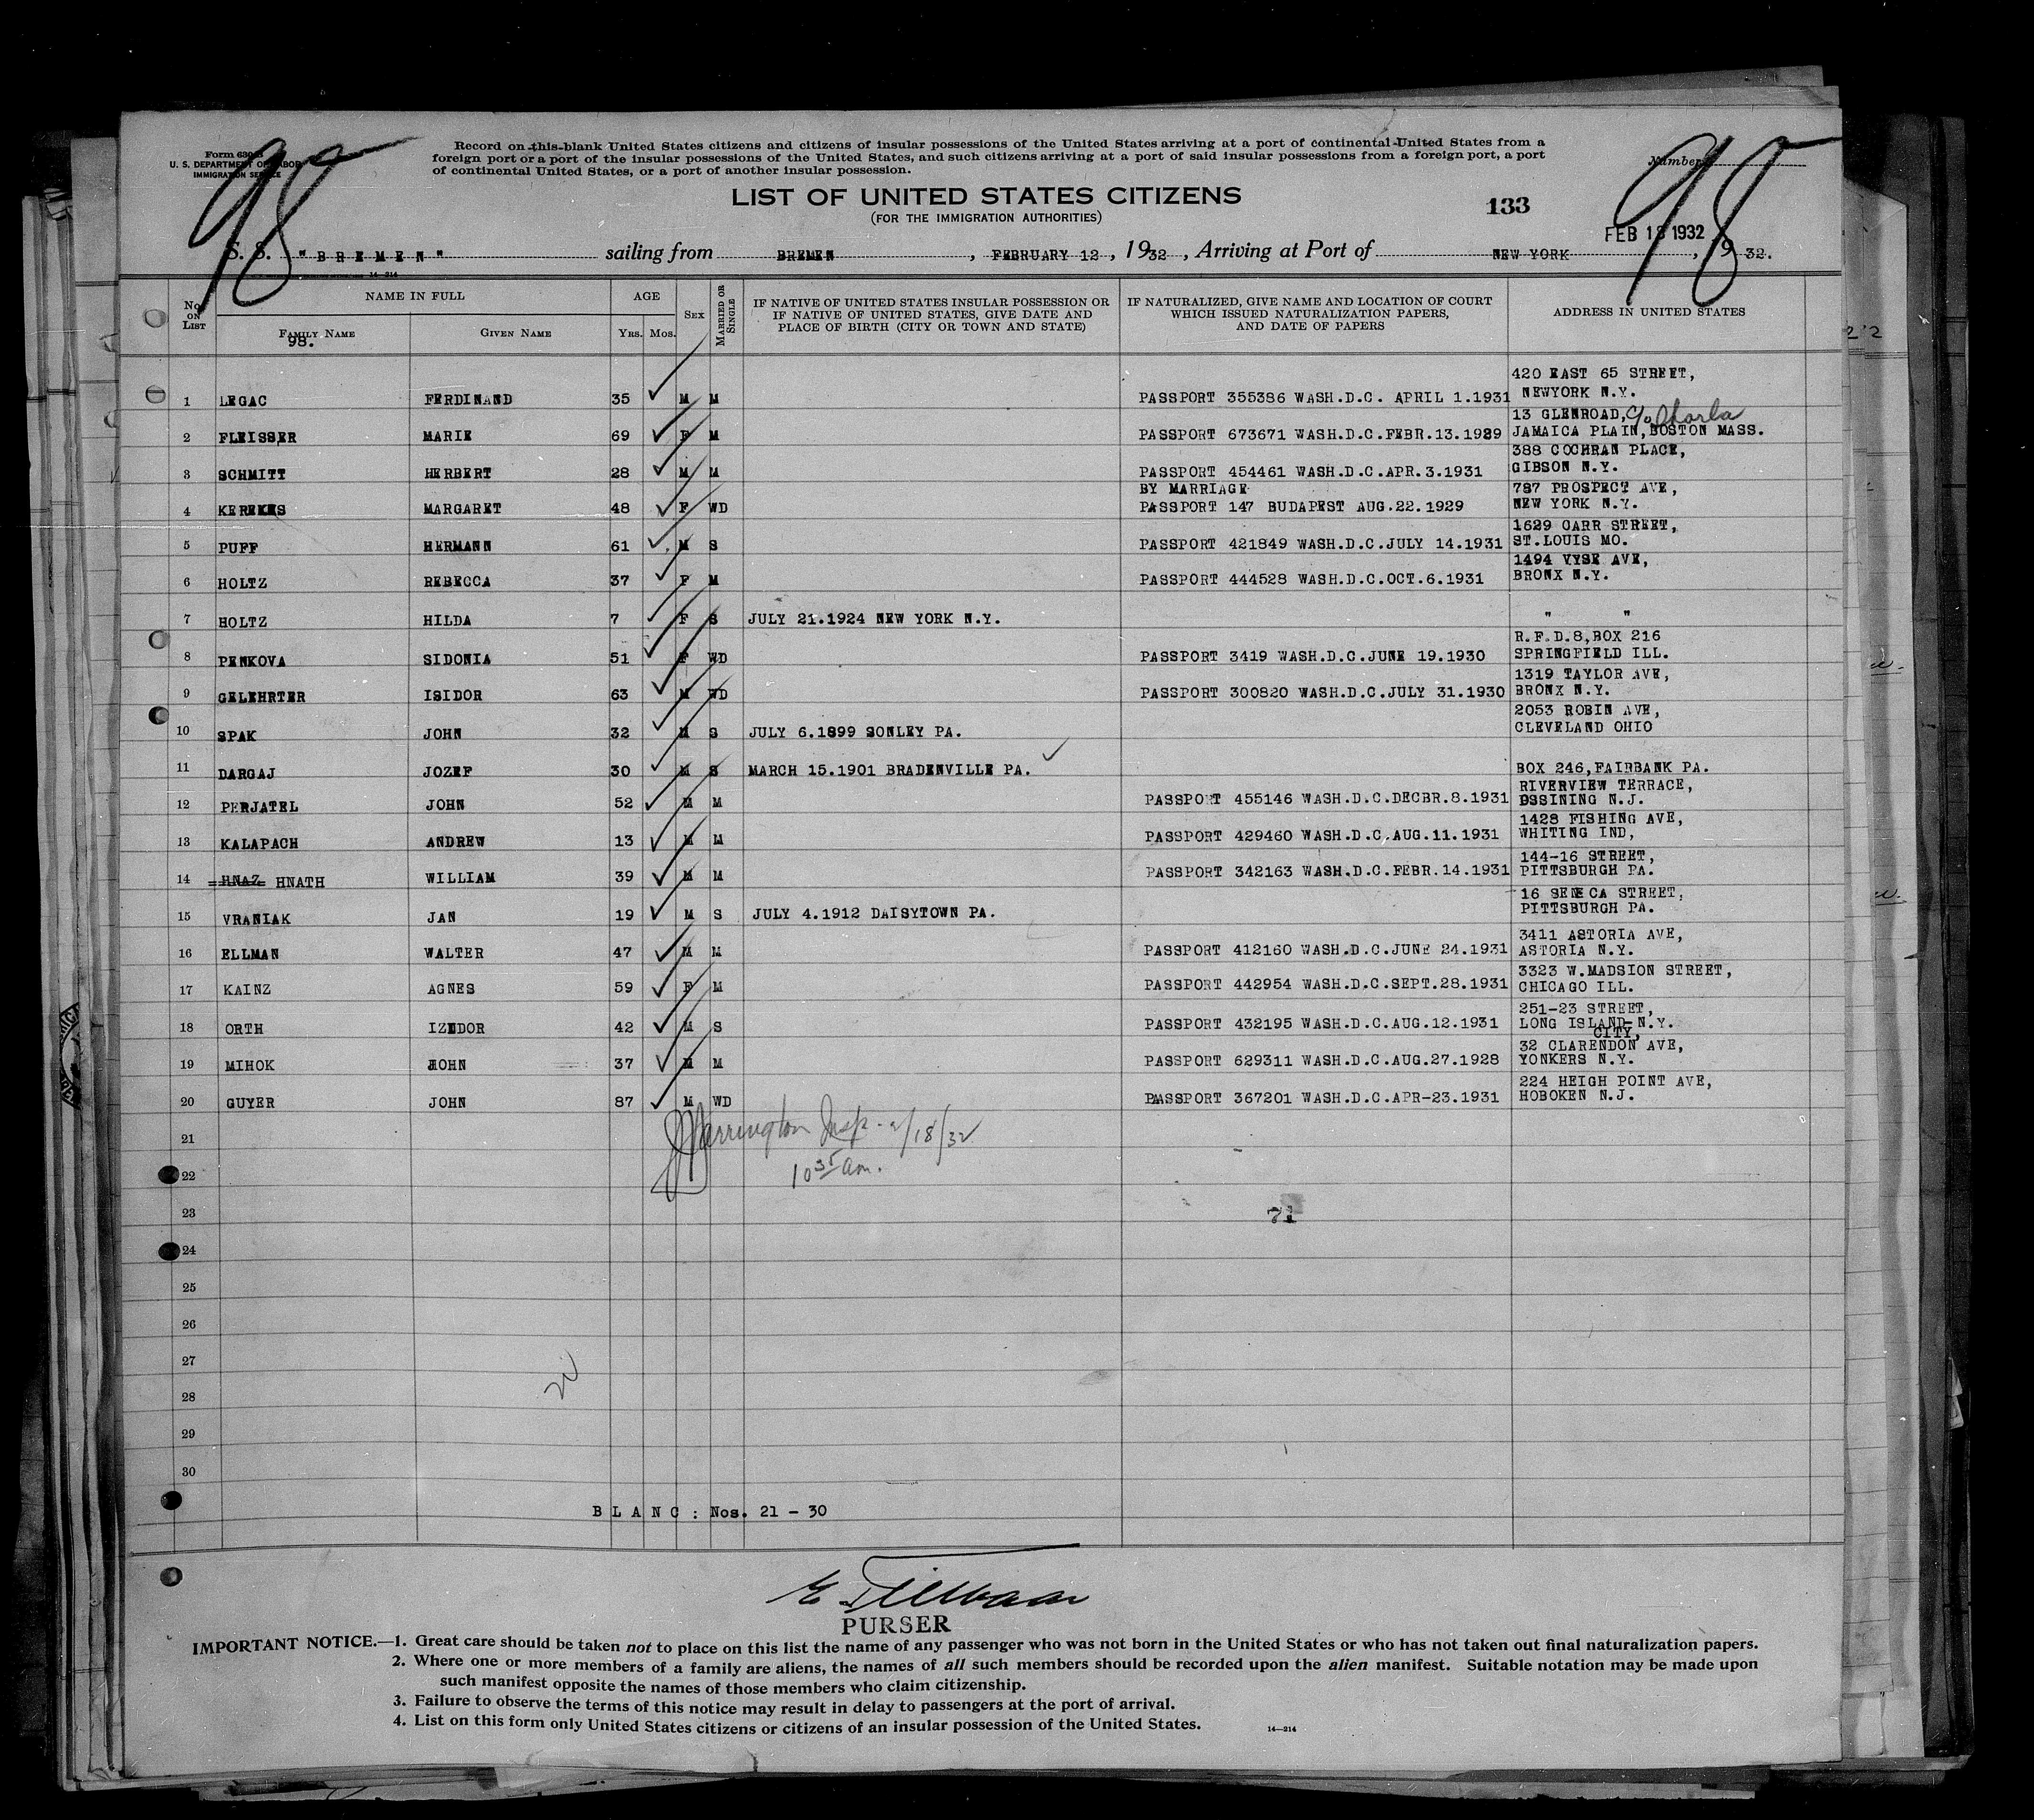 Form 630-B
U. S. DEPARTMENT OF LABOR
IMMIGRATION SERVICE
98
Record on this blank United States citizens and citizens of insular possessions of the United States arriving at a port of continental United States from a
foreign port or a port of the insular possessions of the United States, and such citizens arriving at a port of said insular possessions from a foreign port, a port
of continental United States, or a port of another insular possession.
Number
98
LIST OF UNITED STATES CITIZENS
(FOR THE IMMIGRATION AUTHORITIES)
133
FEB 18 1932
S. S. "BREMEN" sailing from BREMEN, FEBRUARY 12, 1932, Arriving at Port of NEW YORK, 1932.
14-214
No. ON LIST NAME IN FULL AGE SEX MARRIED OR SINGLE IF NATIVE OF UNITED STATES INSULAR POSSESSION OR IF NATIVE OF UNITED STATES, GIVE DATE AND PLACE OF BIRTH (CITY OR TOWN AND STATE) IF NATURALIZED, GIVE NAME AND LOCATION OF COURT WHICH ISSUED NATURALIZATION PAPERS, AND DATE OF PAPERS ADDRESS IN UNITED STATES
FAMILY NAME GIVEN NAME YRS. MOS.
98.
420 EAST 65 STREET,
1 LEGAC FERDINAND 35 M M PASSPORT 355386 WASH.D.C. APRIL 1.1931 NEWYORK N.Y.
13 GLENROAD, c/o Charla
2 FLEISSER MARIE 69 F M PASSPORT 673671 WASH.D.C.FEBR.13.1929 JAMAICA PLAIN,BOSTON MASS.
388 COCHRAN PLACE,
3 SCHMITT HERBERT 28 M M PASSPORT 454461 WASH.D.C.APR.3.1931 GIBSON N.Y.
BY MARRIAGE 787 PROSPECT AVE,
4 KEREKES MARGARET 48 F WD PASSPORT 147 BUDAPEST AUG.22.1929 NEW YORK N.Y.
1629 CARR STREET,
5 PUFF HERMANN 61 M S PASSPORT 421849 WASH.D.C.JULY 14.1931 ST.LOUIS MO.
1494 VYSE AVE,
6 HOLTZ REBECCA 37 F M PASSPORT 444528 WASH.D.C.OCT.6.1931 BRONX N.Y.
7 HOLTZ HILDA 7 F S JULY 21.1924 NEW YORK N.Y. " "
R.F.D.8,BOX 216
8 PENKOVA SIDONIA 51 F WD PASSPORT 3419 WASH.D.C.JUNE 19.1930 SPRINGFIELD ILL.
1319 TAYLOR AVE,
9 GELEHRTER ISIDOR 63 M WD PASSPORT 300820 WASH.D.C.JULY 31.1930 BRONX N.Y.
2053 ROBIN AVE,
10 SPAK JOHN 32 M S JULY 6.1899 SONLEY PA. CLEVELAND OHIO
11 DARGAJ JOZEF 30 M S MARCH 15.1901 BRADENVILLE PA. BOX 246,FAIRBANK PA.
RIVERVIEW TERRACE,
12 PERJATEL JOHN 52 M M PASSPORT 455146 WASH.D.C.DECBR.8.1931 OSSINING N.J.
1428 FISHING AVE,
13 KALAPACH ANDREW 13 M M PASSPORT 429460 WASH.D.C.AUG.11.1931 WHITING IND,
144-16 STREET,
14 HNAZ HNATH WILLIAM 39 M M PASSPORT 342163 WASH.D.C.FEBR.14.1931 PITTSBURGH PA.
16 SENECA STREET,
15 VRANIAK JAN 19 M S JULY 4.1912 DAISYTOWN PA. PITTSBURGH PA.
3411 ASTORIA AVE,
16 ELLMAN WALTER 47 M M PASSPORT 412160 WASH.D.C.JUNE 24.1931 ASTORIA N.Y.
3323 W.MADSION STREET,
17 KAINZ AGNES 59 F M PASSPORT 442954 WASH.D.C.SEPT.28.1931 CHICAGO ILL.
251-23 STREET,
18 ORTH IZEDOR 42 M S PASSPORT 432195 WASH.D.C.AUG.12.1931 LONG ISLAND N.Y.
CITY,
32 CLARENDON AVE,
19 MIHOK JOHN 37 M M PASSPORT 629311 WASH.D.C.AUG.27.1928 YONKERS N.Y.
224 HEIGH POINT AVE,
20 GUYER JOHN 87 M WD PASSPORT 367201 WASH.D.C.APR-23.1931 HOBOKEN N.J.
21 Harrington Insp - 2/18/32
22 10 35 am.
23 71
24
25
26
27
28
29
30
BLANC: Nos. 21 - 30
PURSER
IMPORTANT NOTICE.—1. Great care should be taken not to place on this list the name of any passenger who was not born in the United States or who has not taken out final naturalization papers.
2. Where one or more members of a family are aliens, the names of all such members should be recorded upon the alien manifest. Suitable notation may be made upon
such manifest opposite the names of those members who claim citizenship.
3. Failure to observe the terms of this notice may result in delay to passengers at the port of arrival.
4. List on this form only United States citizens or citizens of an insular possession of the United States.
14—214